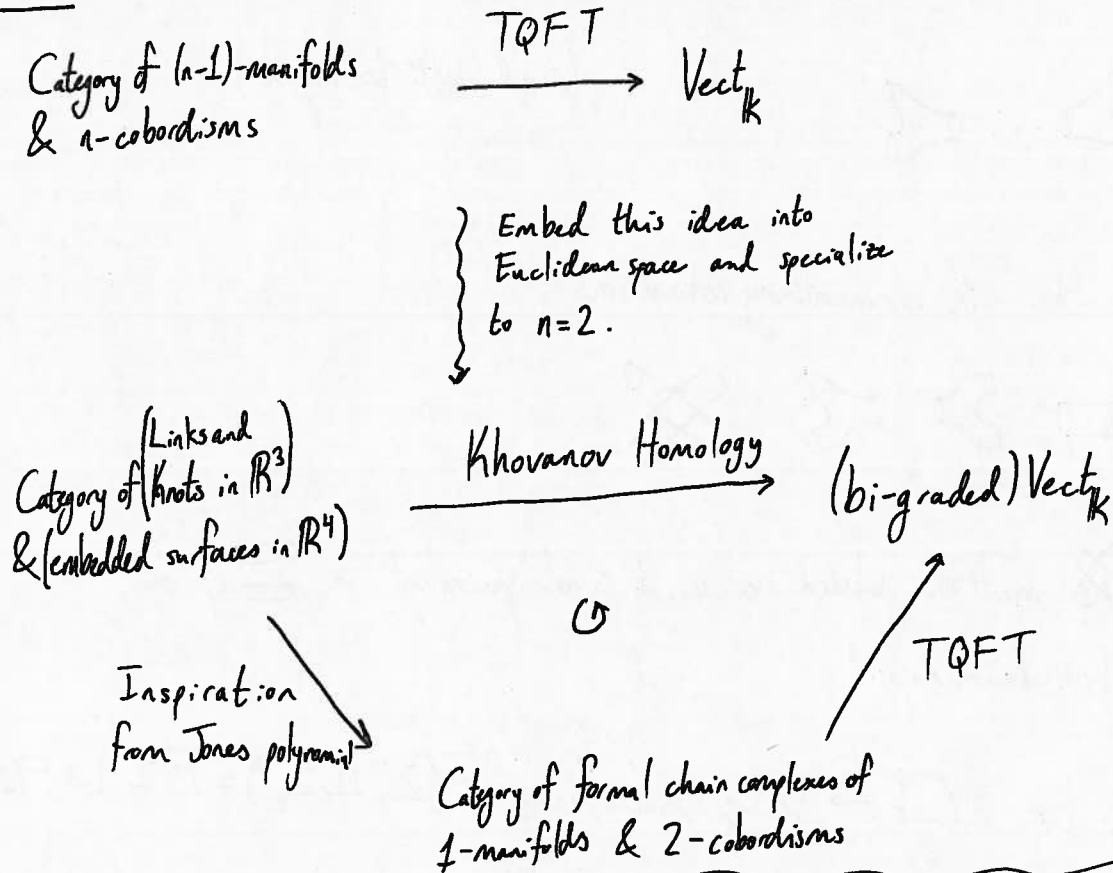 TQFT
Category of (n-1)-manifolds
& n-cobordisms
Vect_𝕜
Embed this idea into
Euclidean space and specialize
to n=2.
Category of (Links and
Knots in ℝ³)
& (embedded surfaces in ℝ⁴)
Khovanov Homology
(bi-graded) Vect_𝕜
Inspiration
from Jones polynomial
TQFT
Category of formal chain complexes of
1-manifolds & 2-cobordisms